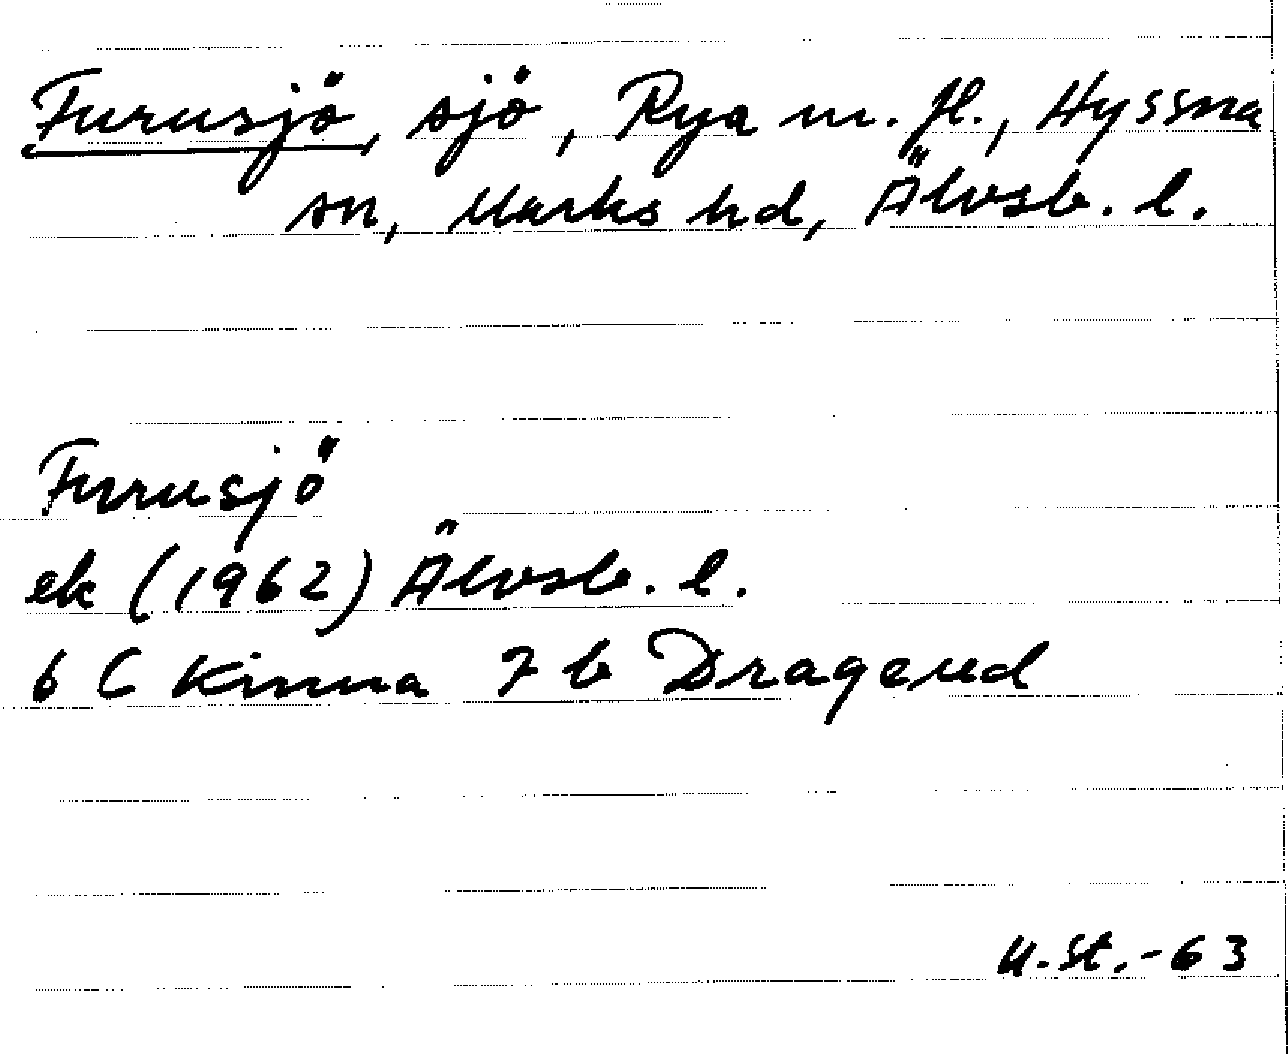 Furusjö, sjö, Rya m. fl., Hyssna
sn, Marks hd, Älvsb. l.
Furusjö
ek (1962) Älvsb. l.
6 C Kinna 7 b Dragered
U.St.-63